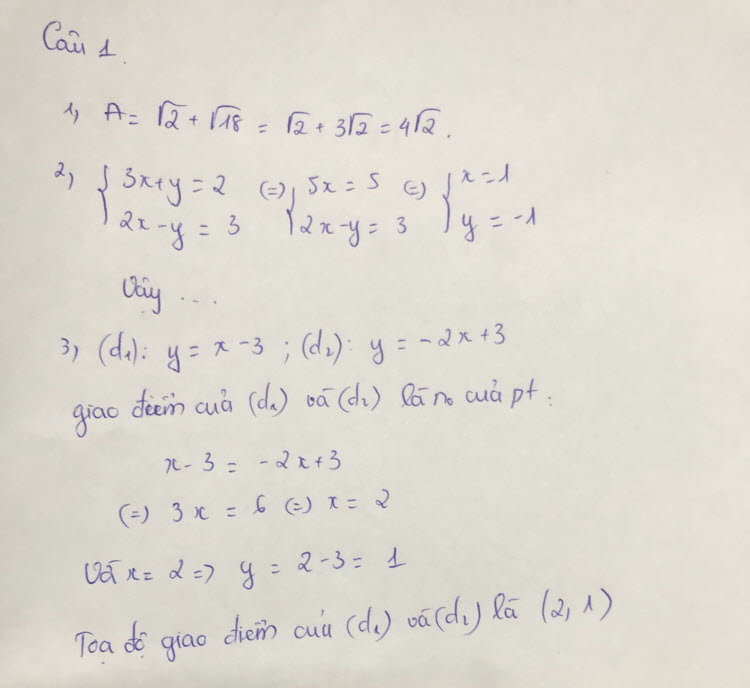 Câu 1.
1, A = √2 + √18 = √2 + 3√2 = 4√2.
2, { 3x+y = 2 (=) { 5x = 5 (=) { x = 1
2x-y = 3 2x-y = 3 y = -1
Vậy ...
3, (d₁): y = x - 3 ; (d₂): y = -2x+3
giao điểm của (d₁) và (d₂) là n₀ của pt:
x - 3 = -2x+3
(=) 3x = 6 (=) x = 2
Với x = 2 => y = 2 - 3 = 1
Toạ độ giao điểm của (d₁) và (d₂) là (2, 1)